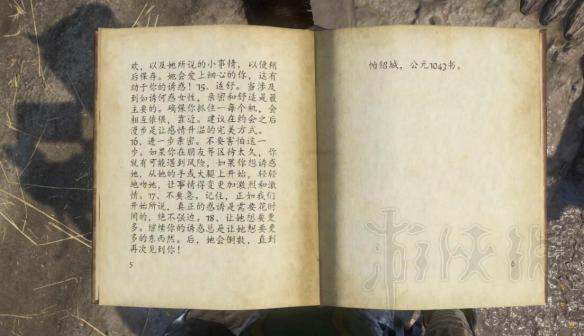 欢，以及她所说的小事情，以便稍
后保存。她会爱上细心的你，这有
助于你的诱惑！15、适舒。当涉及
到如诱何惑女性，亲密和舒适是最
主要的。确保你抓住一每个机，会
相互依偎，靠近。建议在约会之后
漫步是让感情升温的完美方式。
16、进一步亲密。不要害怕这一
步。如果你在朋友等区待太久，你
就有可能遇到风险，如果你想诱惑
她，从她的手或大腿上开始，轻轻
地吻她，让事情得变更加激烈和激
情。17、不矣急。记住，正如我们
开始所说，真正的惑诱是需要花时
间的，绝不强迫。18、让她想要更
多。继续你的诱惑总是让她想要更
多的东西然。后，她会倒数，直到
再次见到你！
5
怕绍城，公元1043书。
6
游侠